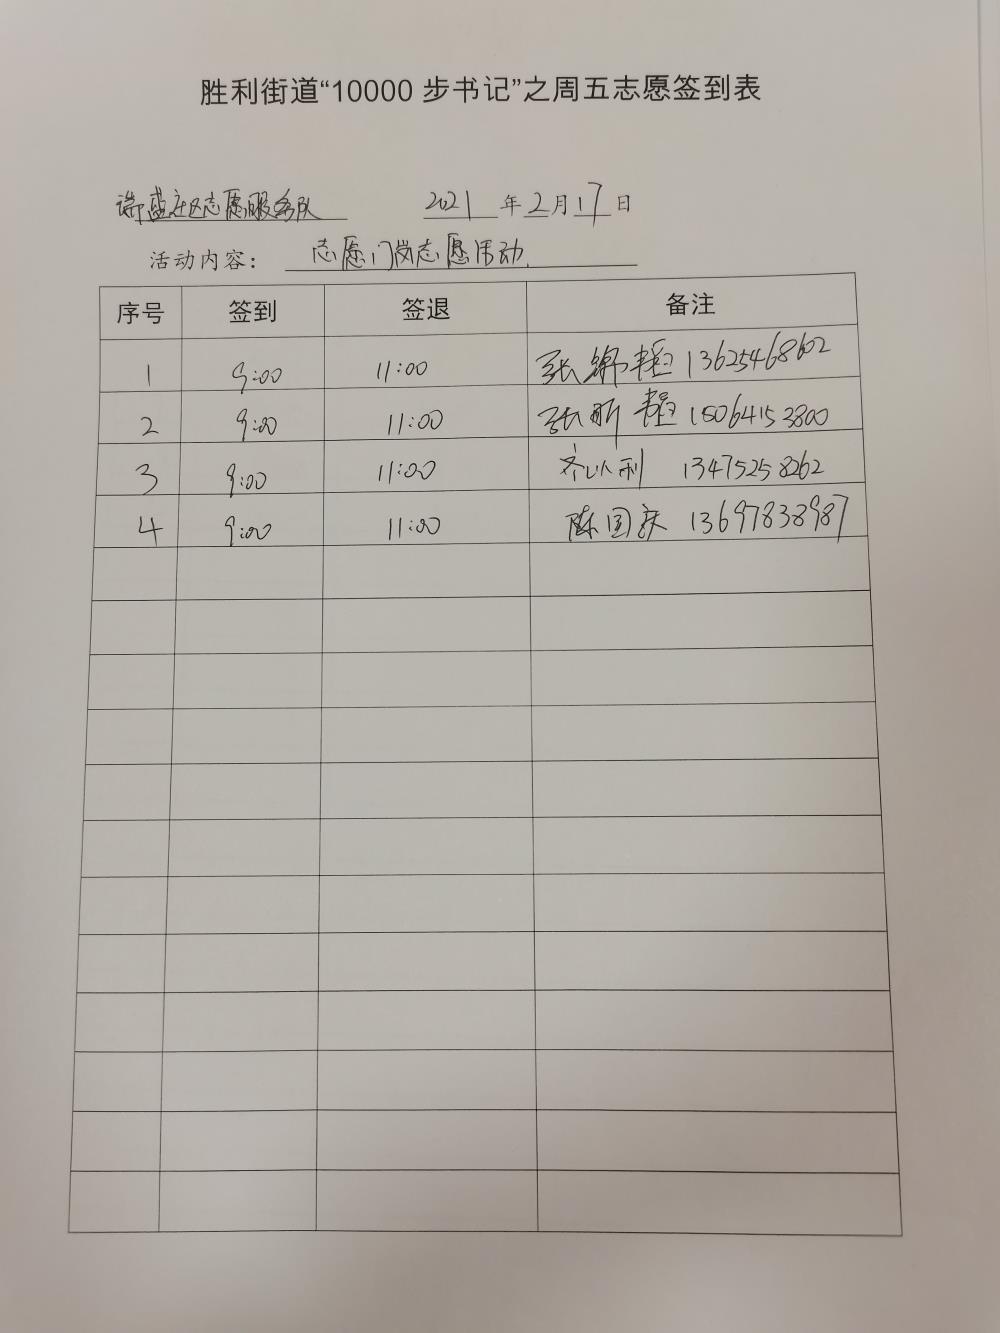 胜利街道“10000步书记”之周五志愿签到表
盛社区志愿服务队 2021年2月17日
活动内容： 志愿门岗志愿活动
序号 签到 签退 备注
1 9:00 11:00 张 13625468602
2 9:00 11:00 张昕韫 15064153800
3 9:00 11:00 齐以利 13475258262
4 9:00 11:00 陈国庆 13697838987